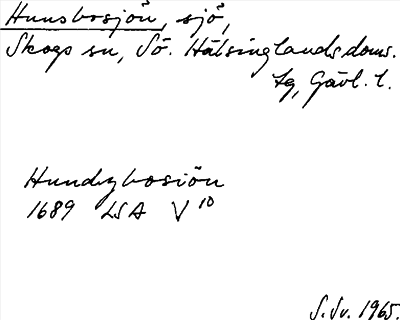 Hunsbosjön, sjö,
Skogs sn, Sö. Hälsinglands doms.
lg, Gävl. l.
Hundzbosiön
1689 LSA V¹⁰
S. Sv. 1965.